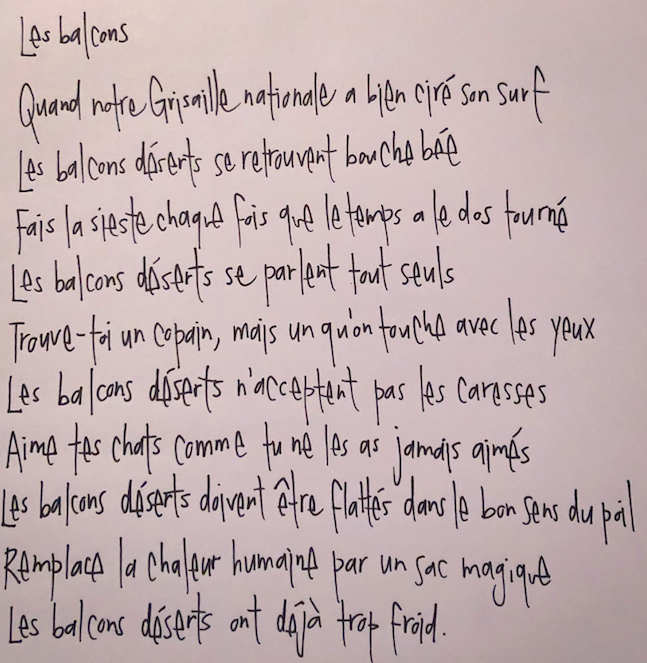 Les balcons
Quand notre Grisaille nationale a bien ciré son surf
Les balcons déserts se retrouvent bouche bée
Fais la sieste chaque fois que le temps a le dos tourné
Les balcons déserts se parlent tout seuls
Trouve-toi un copain, mais un qu'on touche avec les yeux
Les balcons déserts n'acceptent pas les caresses
Aime tes chats comme tu ne les as jamais aimés
Les balcons déserts doivent être flattés dans le bon sens du poil
Remplace la chaleur humaine par un sac magique
Les balcons déserts ont déjà trop froid.